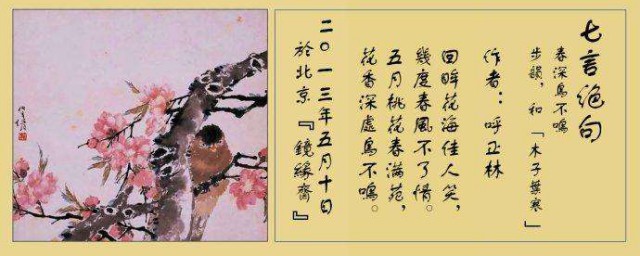 七言绝句
春深鸟不鸣
步韻，和「木子葉寒」
作者：呼正林
回眸花海佳人笑，
幾度春風不了情。
五月桃花春满苑，
花香深處鳥不鳴。
二〇一三年五月十日
於北京『鏡緣齋』